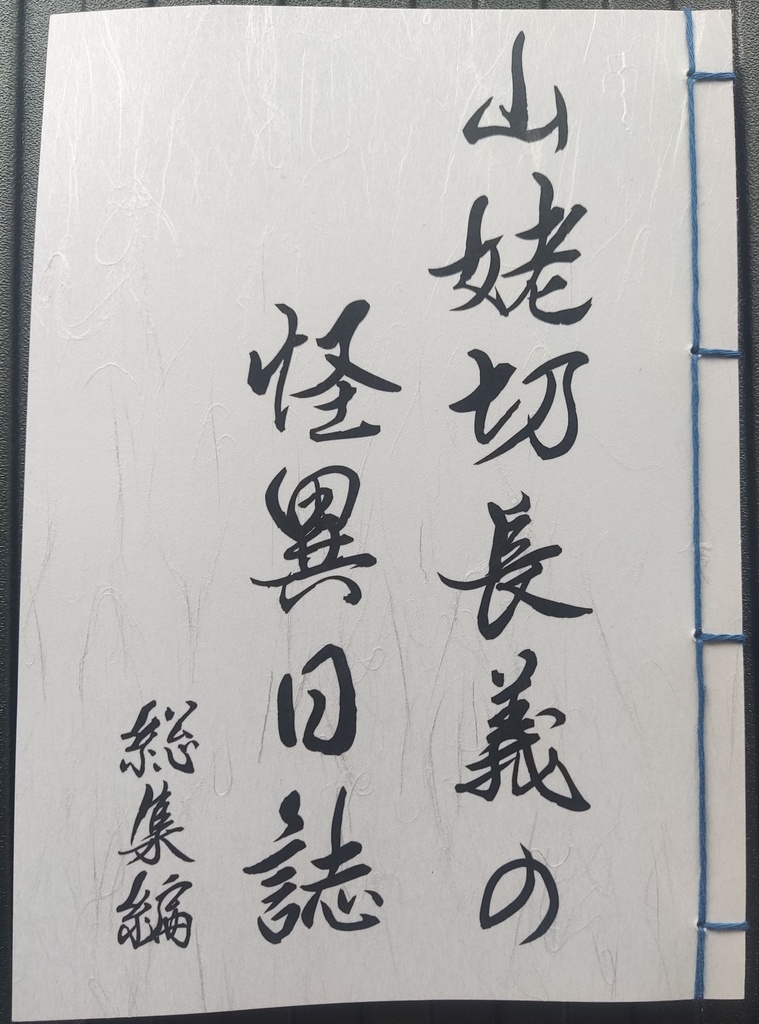 山姥切長義の
怪異日誌
総集編